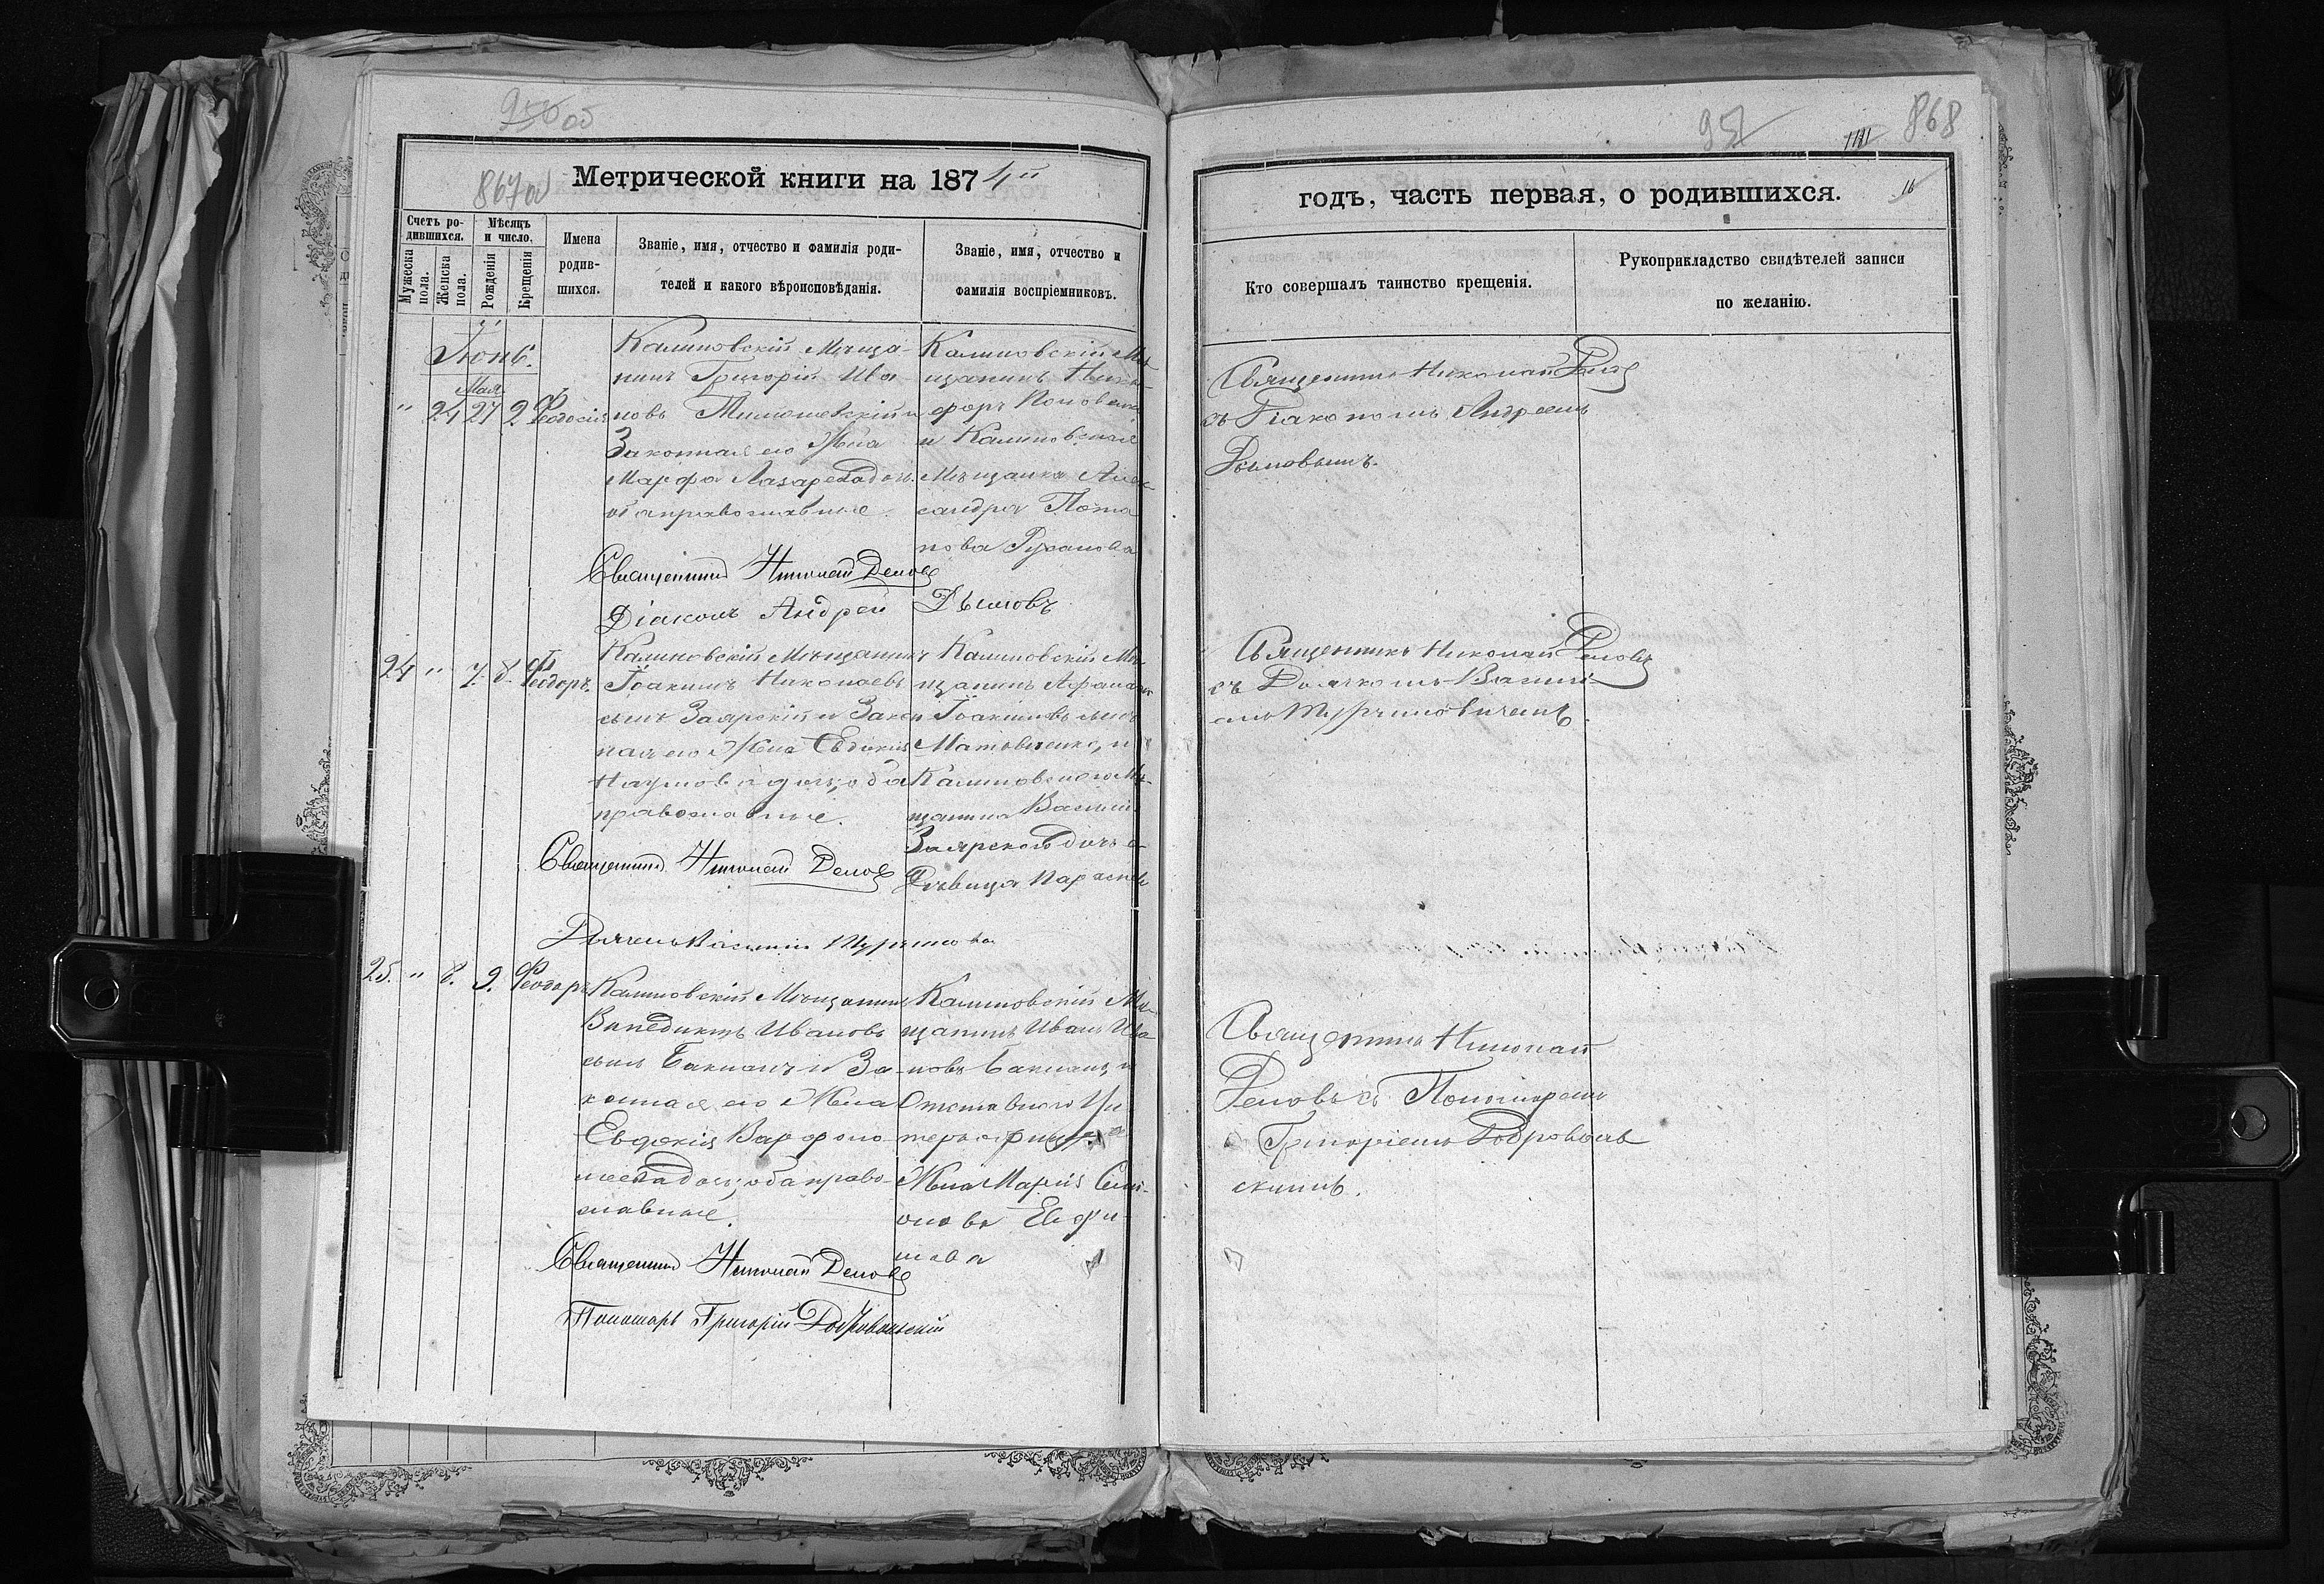 868
867об
Метрической книги на 1874
годъ, часть первая, о родившихся.
Счетъ родившихся.
Мужеска пола.
Женска пола.
Мѣсяцъ и число.
Рожденія
Крещенія
Имена родив-
шихся.
Званіе, имя, отчество и фамилія роди-
телей и какого вѣроисповѣданія.
Званіе, имя, отчество и
фамилія воспріемниковъ.
Кто совершалъ таинство крещенія.
Рукоприкладство свидѣтелей записи
по желанію.
Іюнь.
Мая
" 24 27 2 Феодосія
Калиновскій Мѣща-
нинъ Григорій Ива
новъ и
Законная его Жена
Марфа Лазарева дочь
оба православные.
Калиновскій Мѣ
щанинъ Ники-
форъ
и Калиновская
Мѣщанка Алек
сандра Пота
пова Русанова
Священникъ Николай
съ Діакономъ Андреемъ
Дымовымъ.
Священникъ Николай
Діаконъ Андрей Дымовъ
24 " 7. 8. Феодоръ.
Калиновскій Мѣщанинъ
Іоакимъ Николаевъ
сынъ Заярскій и Закон
ная его Жена Евдокія
Наумова дочь, оба
православные.
Калиновскій Мѣ-
щанинъ Афанасій
Іоакимовъ сынъ
и
Калиновскаго Мѣ-
щанина Василія
Заярскаго дочь
Дѣвица Параскева
Священникъ Николай
съ Дьячкомъ Васили-
емъ
Священникъ Николай
Дьячекъ Василій
25. " 8. 9. Феодоръ
Калиновскій Мѣщанинъ
Венедиктъ Ивановъ
сынъ и За-
конная его Жена
Евдокія Варфоло-
меева дочь, оба право-
славные.
Калиновскій Мѣ-
щанинъ Иванъ Ива
новъ и
Отставнаго Ун
теръ офицера
Жена Марія Сем-
онова Евфи-
мова
Священникъ Николай
съ Пономаремъ
Григоріемъ Доброволь
скимъ.
Священникъ Николай
Пономарь Григорій Добровольскій